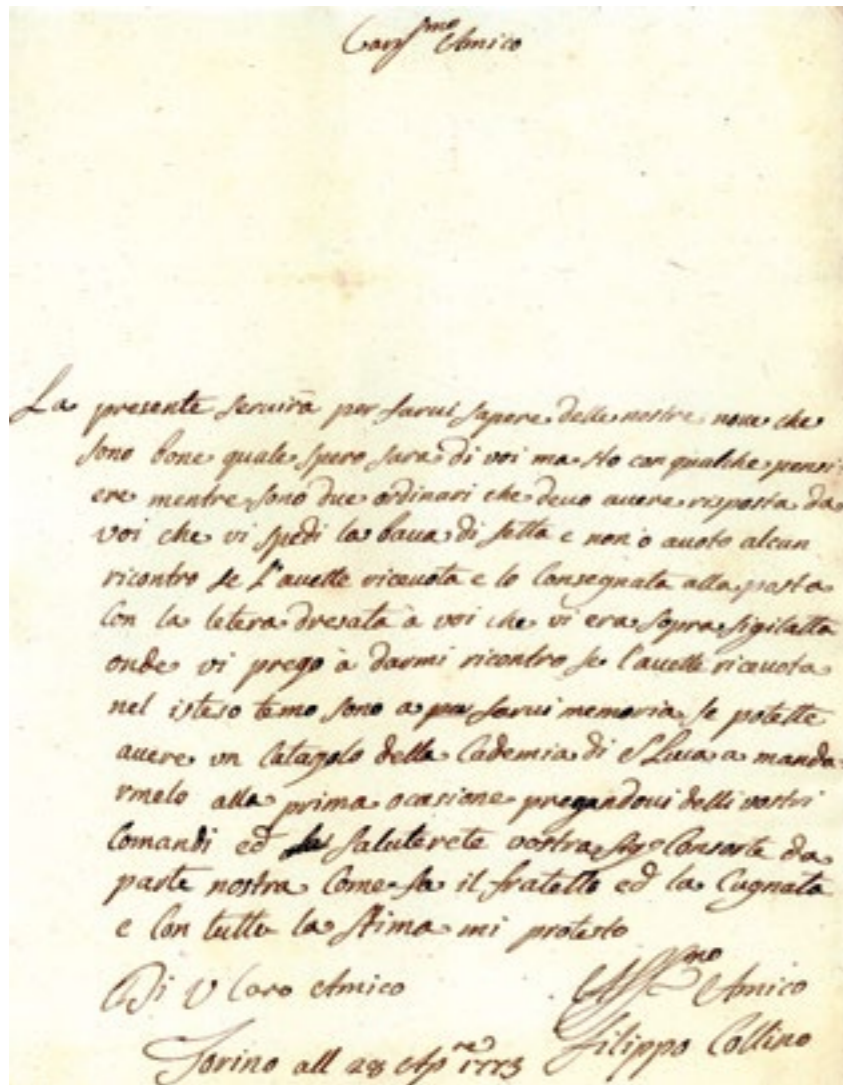 Cariss.mo Amico
La presente seruirà per farui sapere delle nostre noue che
sono bone quale spero sara di voi ma sto con qualche pensi
ere mentre sono due ordinari che deuo auere risposta da
voi che vi spedi la baua di setta e non ò auoto alcun
ricontro se l'auette riceuota e lo Consegnata alla posta
Con la letera dresata à voi che vi era sopra sigilatta
onde vi prego à darmi ricontro se l'auette riceuota
nel isteso temo sono a farui memoria se potette
auere vn Catagolo della Cademia di S Luca a manda-
rmelo alla prima ocasione pregandoui delli vostri
Comandi ed saluterete vostra Sig.a Consorte da
parte nostra Come fa il fratello ed la Cugnata
e Con tutta la stima mi protesto
Di V Caro Amico
Aff.mo Amico
Filippo Collino
Torino all 28 Ap.re 1773